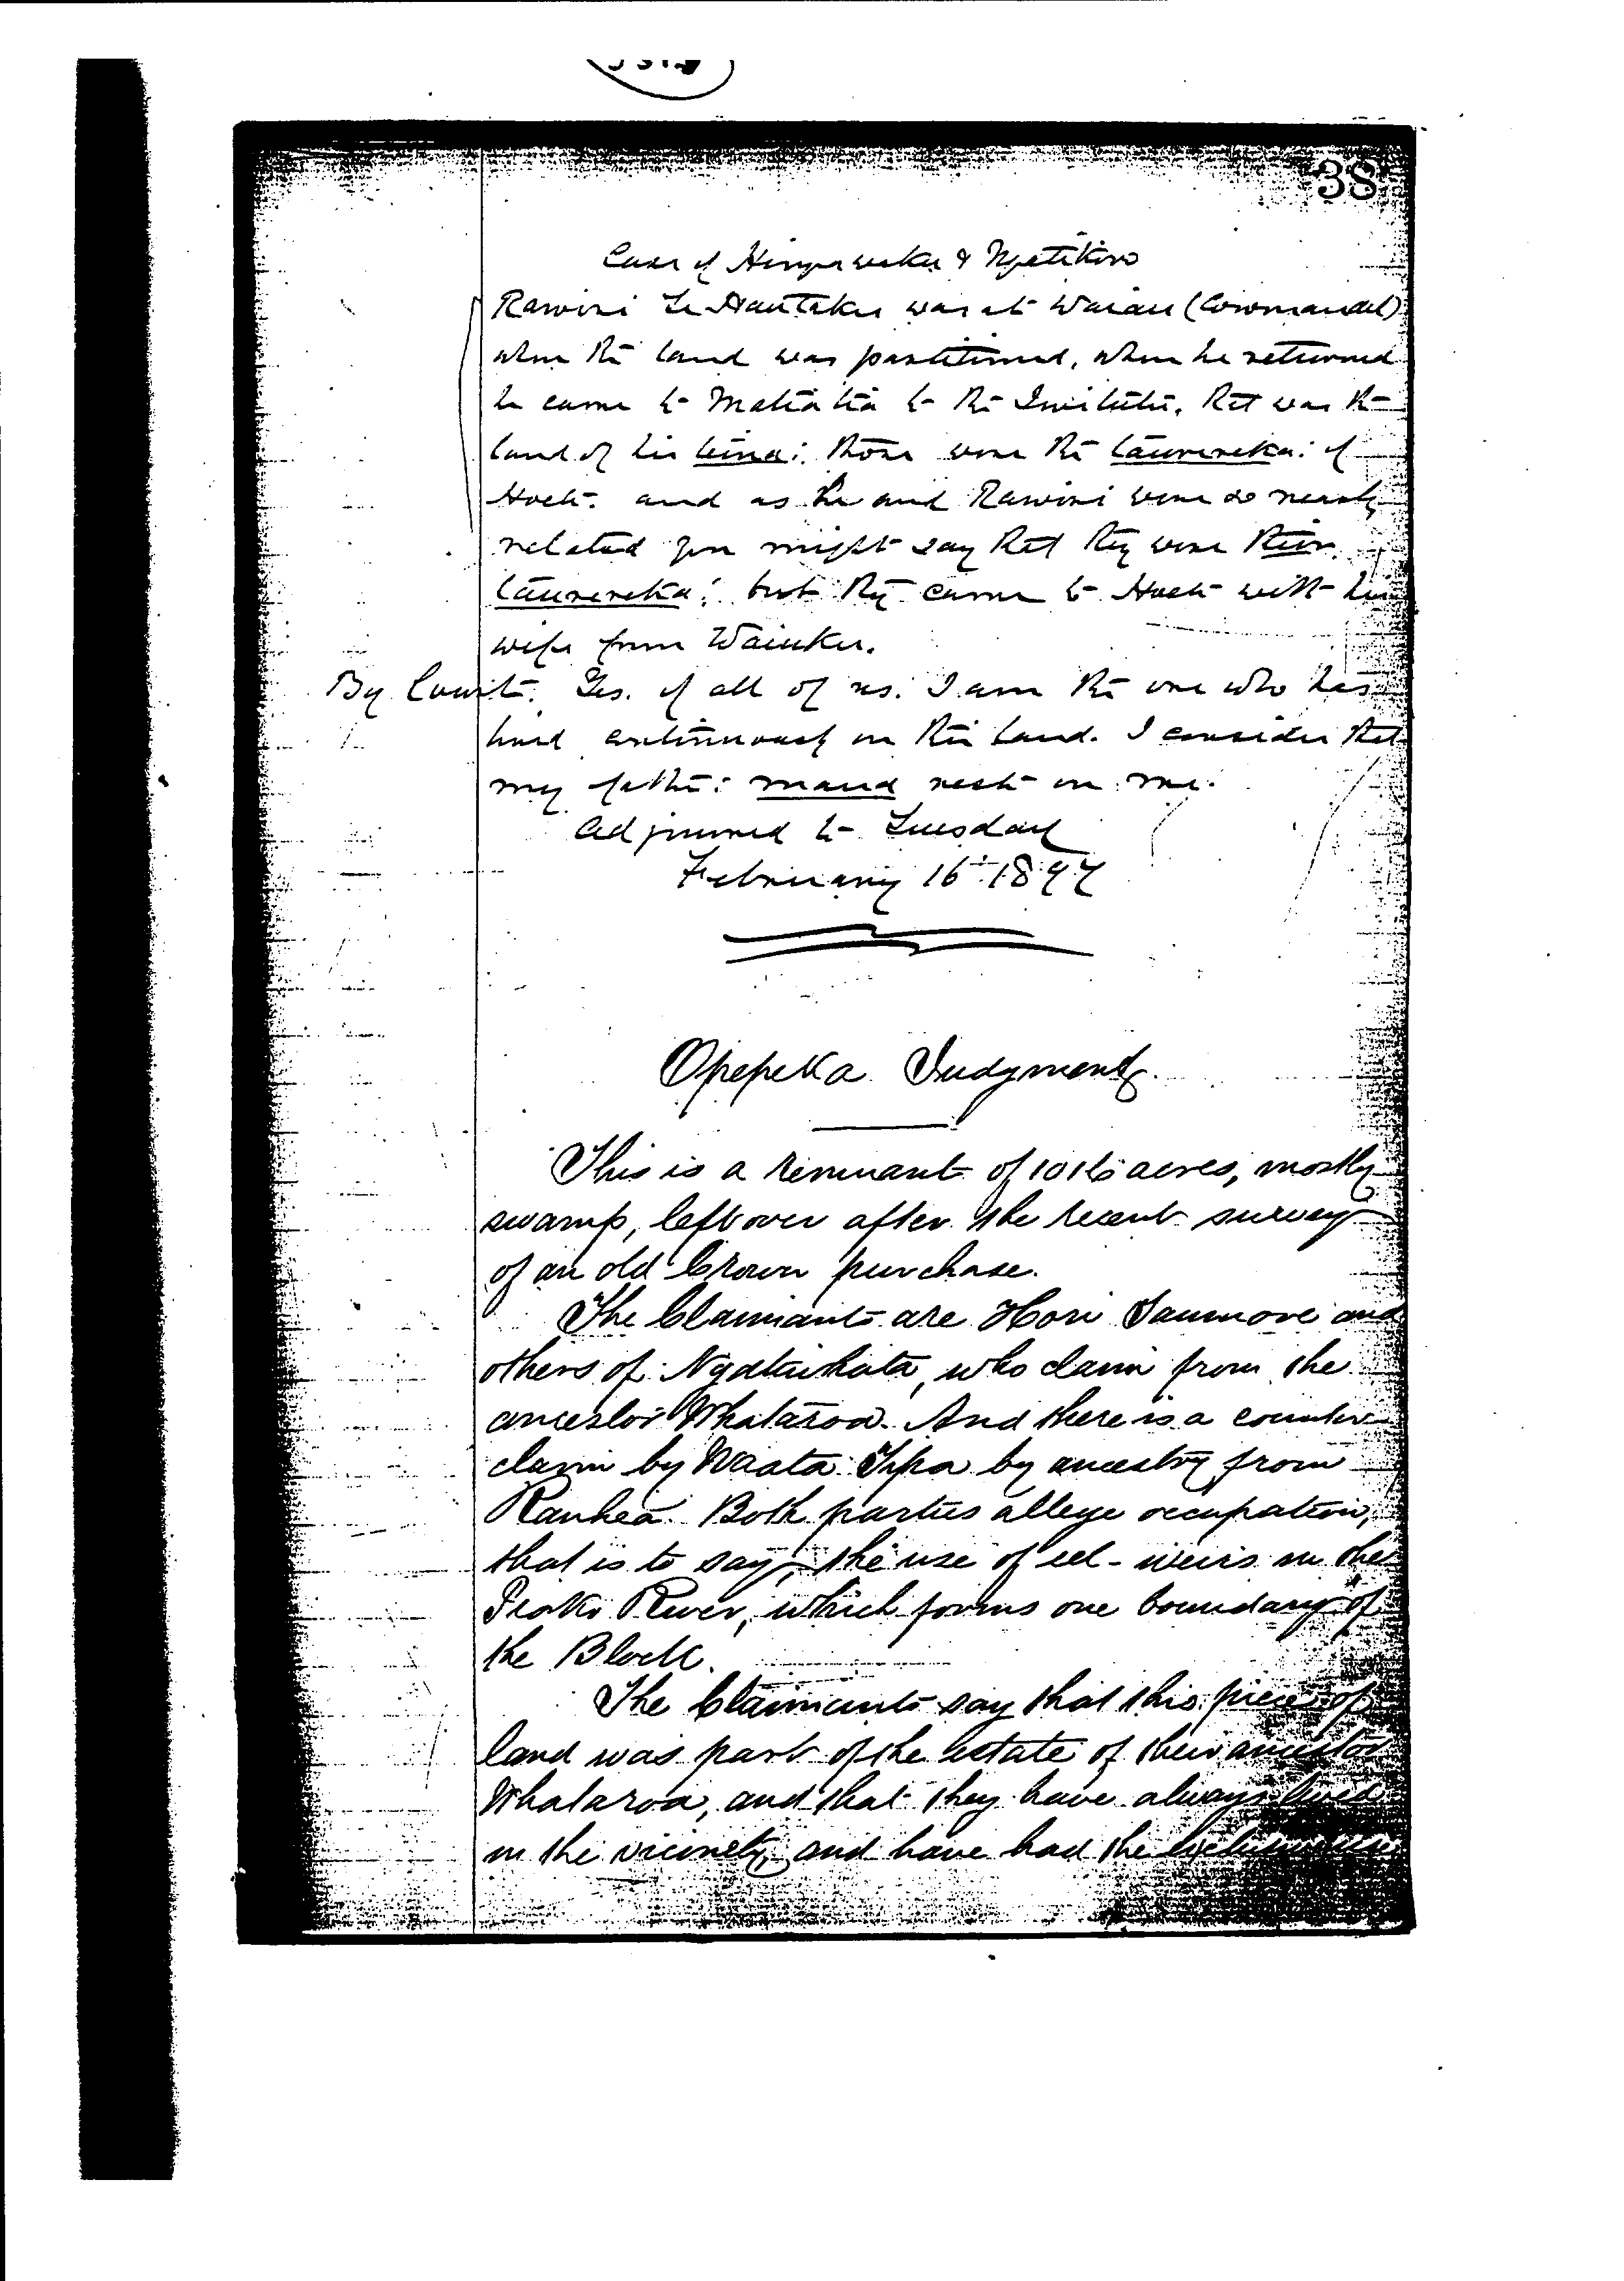 38
Case of Hingaweka & Ngatikiro
Rawiri Te Hautaku was at Waiau (Coromandel)
when the land was partitioned, when he returned
he came to Matiatia to the Institute. that was the
land of his teina: those were the taurereka: of
Hoete. and as he and Rawiri were so nearly
related you might say that they were their
taurereka: but they came to Hoete with his
wife from Waiuku.
By Court. Yes. of all of us. I am the one who has
lived continuously on this land. I consider that
my father: mana rests on me.
Adjourned to Tuesday
February 16th 1897
Opepeka Judgment.
This is a remnant of acres, mostly
swamp, left over after the recent survey
of an old Crown purchase.
The Claimants are Hori and
others of Ngataiwhata, who claim from the
ancestor Whataroa. And there is a counter
claim by Waata Tipa by ancestry from
Rauhea. Both parties allege occupation,
that is to say, the use of eel-weirs in the
Piako River, which forms one boundary of
the Block.
The Claimants say that this piece of
land was part of the estate of their ancestor
Whataroa, and that they have always lived
in the vicinity, and have had the exclusive use